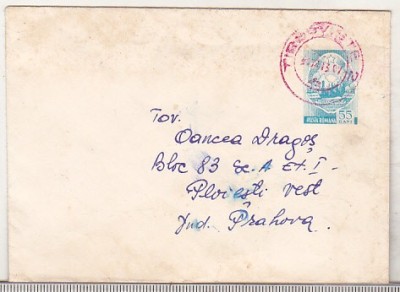 TIRGOVISTE
POSTA ROMANA 55
Tov.
Oancea Dragoș
Bloc 83 sc. A et. I
Ploiești vest
Jud. Prahova.